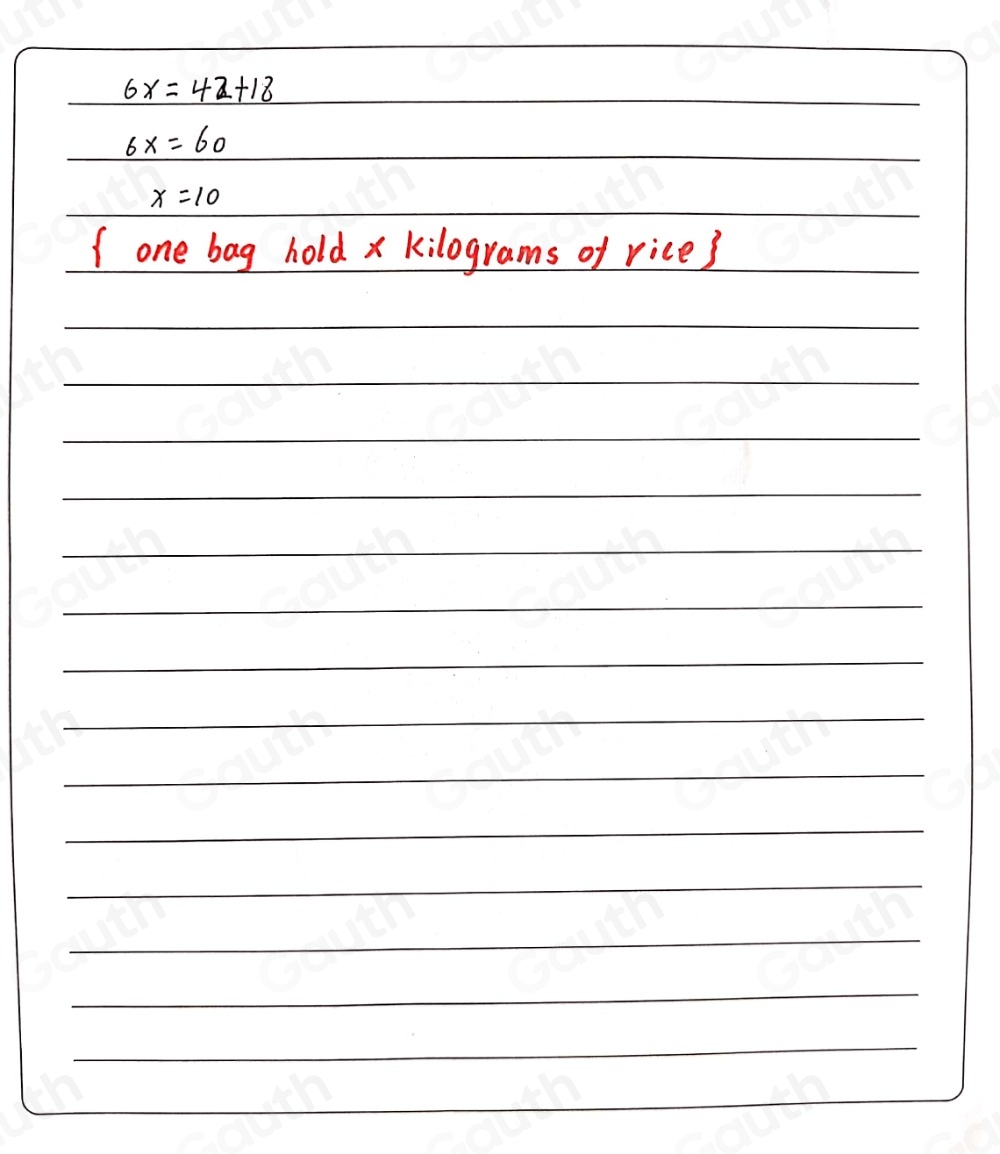 6x = 42+18
6x = 60
x = 10
{ one bag hold x kilograms of rice }